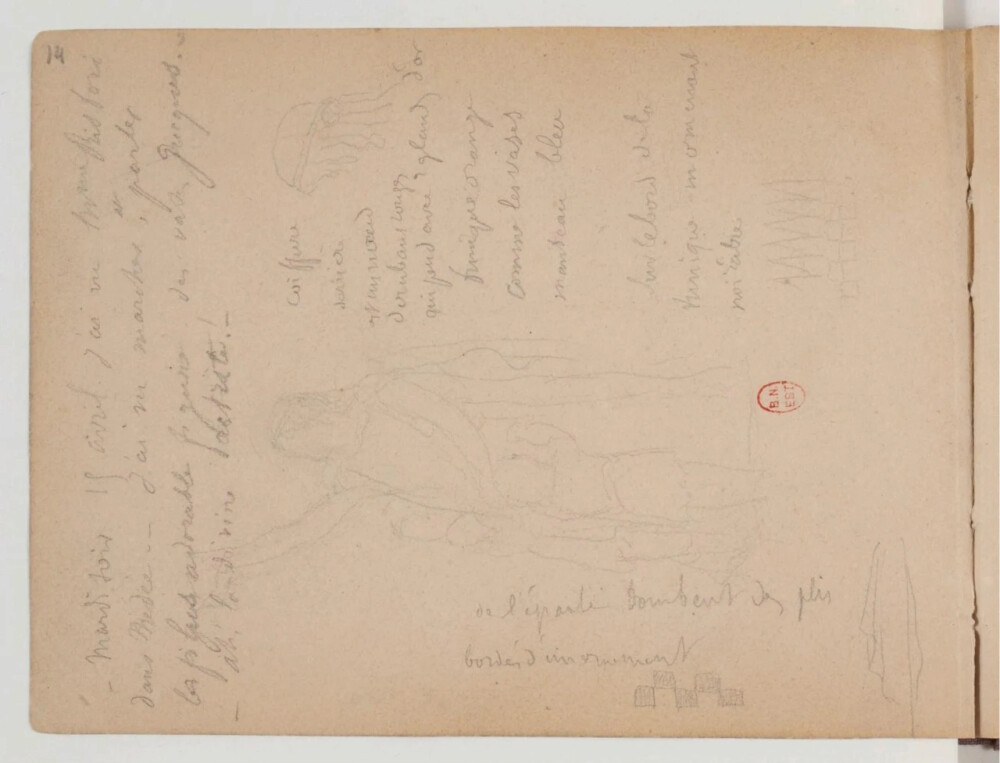 - Mardi soir 15 avril j'ai vu Mme Ristori
dans Médée - J'ai vu marcher, et parler
les plus adorable figures des vases grecques. -
- ah. la divine artiste! -
Coiffure
derrière
un nœud
d'un ruban rouge
qui pend avec glands d'or
tunique orange
comme les vases
manteau bleu
sur le bord de la
tunique un ornement
noir
de l'épaule tombent des plis
bordés d'un ornement
B.N.
EST.